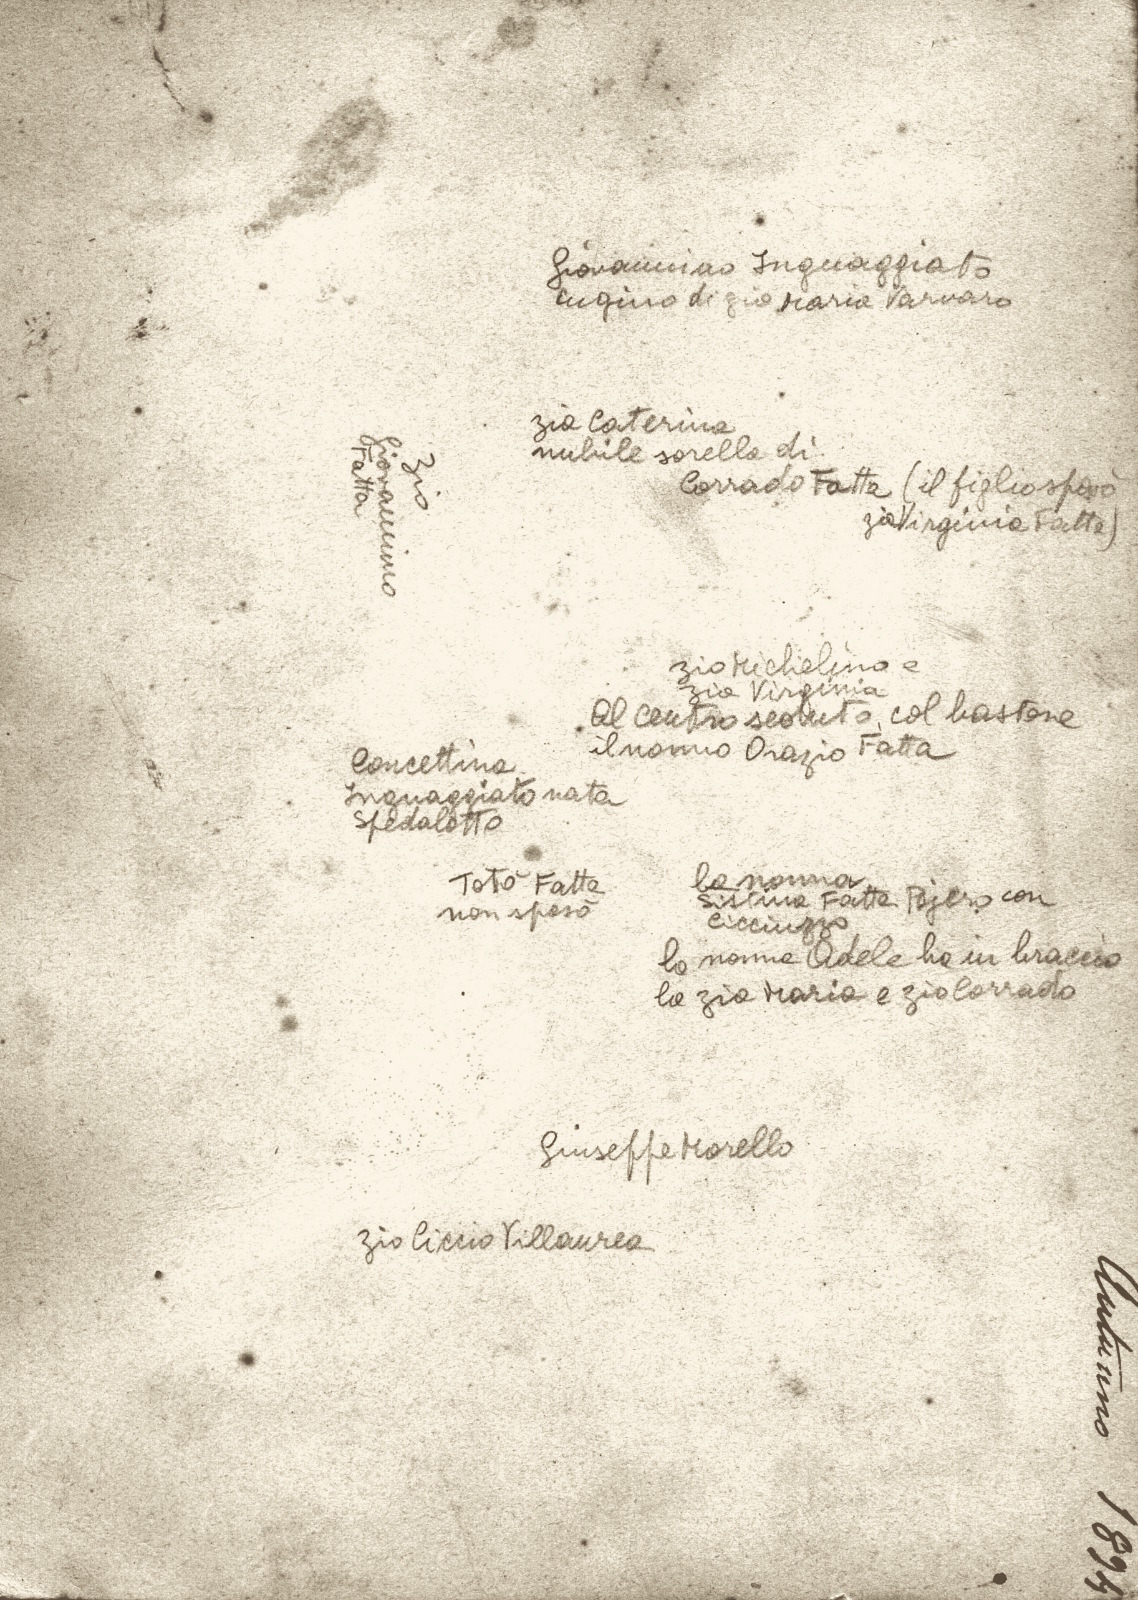 Giovannino Inguaggiato
cugino di zia Maria Varvaro
zia Caterina
nubile sorella di
Corrado Fatta (il figlio sposò
zia Virginia Fatta)
zio
Giovannino
Fatta
zio Michelino e
zia Virginia
Al centro seduto, col bastone
il nonno Orazio Fatta
Concettina
Inguaggiato nata
Spedalotto
Totò Fatta
non sposò
la nonna
Sistina Fatta Pojero con
Cicciuzzo
la nonna Adele ha in braccio
la zia Maria e zio Corrado
Giuseppe Morello
zio Ciccio Villaurea
Autunno 1894